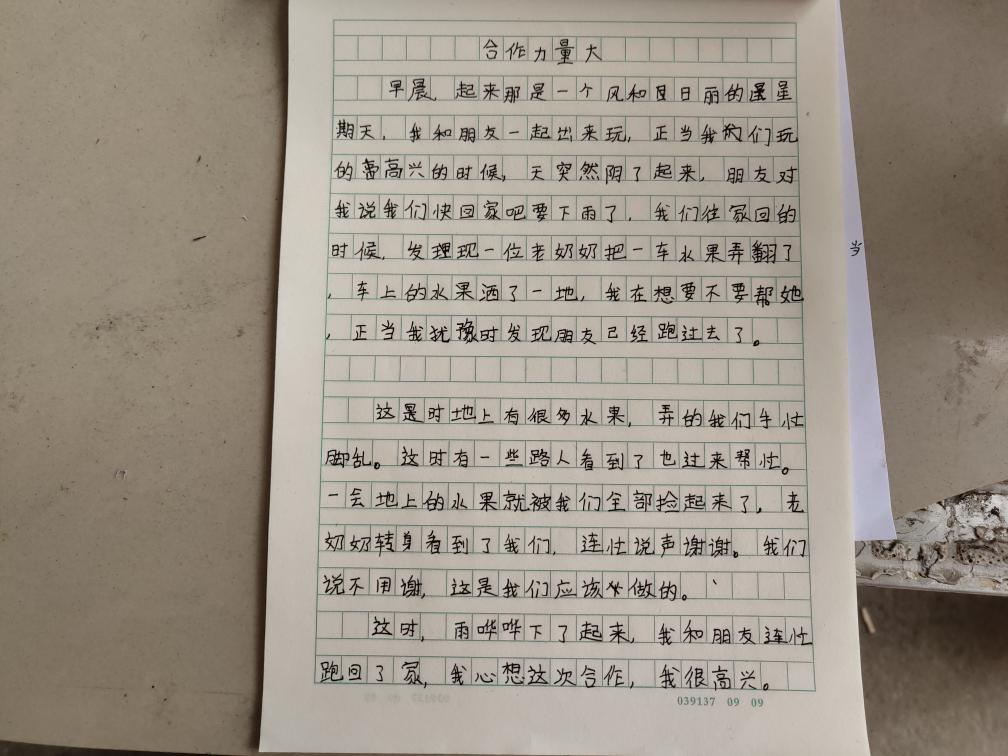 合作力量大
早晨，起来那是一个风和日丽的星
期天，我和朋友一起出来玩，正当我们玩
的高兴的时候，天突然阴了起来，朋友对
我说我们快回家吧要下雨了，我们往家回的
时候，发理现一位老奶奶把一车水果弄翻了
，车上的水果洒了一地，我在想要不要帮她
，正当我犹豫时发现朋友已经跑过去了。
这是时地上有很多水果，弄的我们手忙
脚乱。这时有一些路人看到了也过来帮忙。
一会地上的水果就被我们全部捡起来了，老
奶奶转身看到了我们，连忙说声谢谢。我们
说不用谢，这是我们应该做的。
这时，雨哗哗下了起来，我和朋友连忙
跑回了家，我心想这次合作，我很高兴。
039137 09 09
当